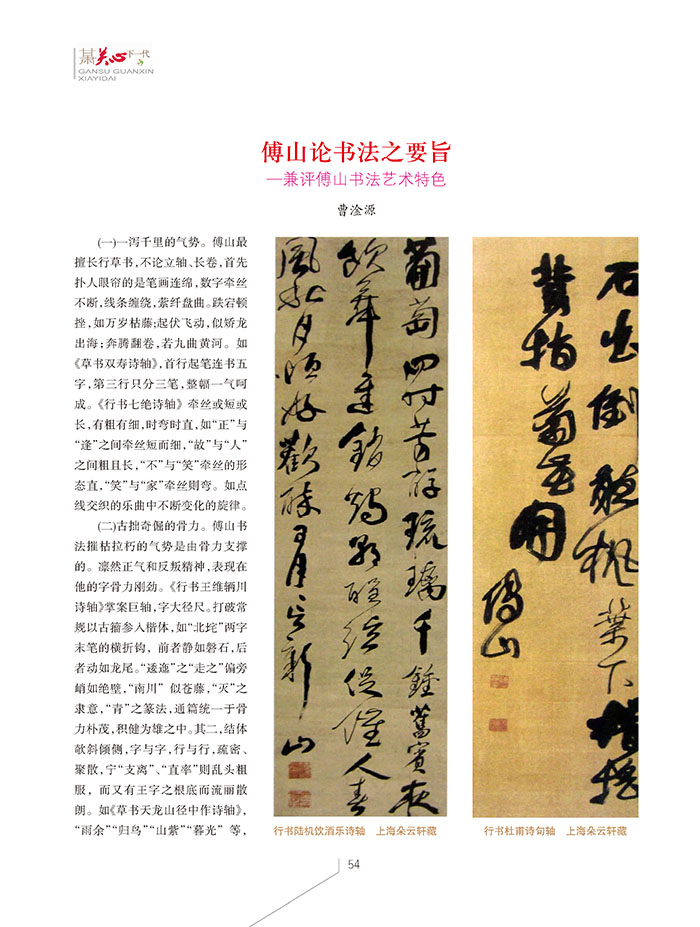 甘肃关心下一代
GANSU GUANXIN
XIAYIDAI
傅山论书法之要旨
—兼评傅山书法艺术特色
曹淦源
(一)一泻千里的气势。傅山最
擅长行草书,不论立轴、长卷,首先
扑人眼帘的是笔画连绵,数字牵丝
不断,线条缠绕,萦纤盘曲。跌宕顿
挫,如万岁枯藤;起伏飞动,似娇龙
出海;奔腾翻卷,若九曲黄河。如
《草书双寿诗轴》,首行起笔连书五
字,第三行只分三笔,整幅一气呵
成。《行书七绝诗轴》牵丝或短或
长,有粗有细,时弯时直,如“正”与
“逢”之间牵丝短而细,“故”与“人”
之间粗且长,“不”与“笑”牵丝的形
态直,“笑”与“家”牵丝则弯。如点
线交织的乐曲中不断变化的旋律。
(二)古拙奇倔的骨力。傅山书
法摧枯拉朽的气势是由骨力支撑
的。凛然正气和反叛精神,表现在
他的字骨力刚劲。《行书王维辋川
诗轴》掌案巨轴,字大径尺。打破常
规以古籀参入楷体,如“北垞”两字
末笔的横折钩,前者静如磐石,后
者动如龙尾。“逶迤”之“走之”偏旁
峭如绝壁,“南川”似苍藤,“灭”之
隶意,“青”之篆法,通篇统一于骨
力朴茂,积健为雄之中。其二,结体
欹斜倾侧,字与字,行与行,疏密、
聚散,宁“支离”、“直率”则乱头粗
服,而又有王字之根底而流丽散
朗。如《草书天龙山径中作诗轴》,
“雨余”“归鸟”“山紫”“暮光”等,
葡萄四时芳醇琉璃千鍾舊賓夜
飲舞遲銷燭朝醒弦促催人春
風秋月恒好歡醉日月言新
山
行书陆机饮酒乐诗轴 上海朵云轩藏
石出倒聽楓葉下櫓搖
背指菊花開
傅山
行书杜甫诗句轴 上海朵云轩藏
54